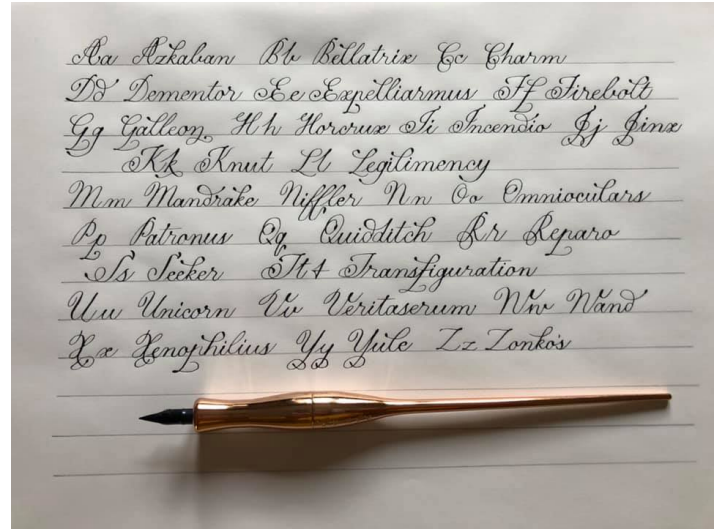 Aa Azkaban Bb Bellatrix Cc Charm
Dd Dementor Ee Expelliarmus Ff Firebolt
Gg Galleon Hh Horcrux Ii Incendio Jj Jinx
Kk Knut Ll Legilimency
Mm Mandrake Niffler Nn Oo Omnioculars
Pp Patronus Qq Quidditch Rr Reparo
Ss Seeker Ttt Transfiguration
Uu Unicorn Vv Veritaserum Ww Wand
Xx Xenophilius Yy Yule Zz Zonko's